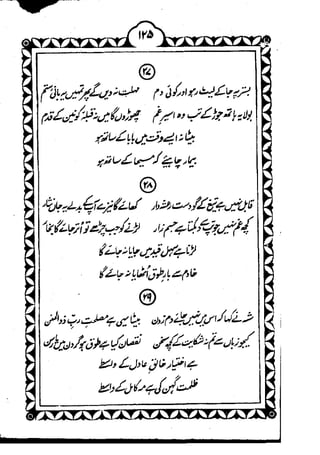 ۱۲۵
۲۷
بستر پہ جا کے لیٹ رہو اور کوئی دم مہلت نہ دیں گے پھر تمہیں یہ بانی ستم
بولا یہ ہاتھ جوڑ کے تب وہ اسیر غم چھوڑوں گا میں نہ قبلۂ کونین کے قدم
بیٹا نہ ایسے وقت میں بابا کے ساتھ ہو
بیمار چاہیے کہ مسیحا کے ساتھ ہو
۲۸
قابل نہیں ہے تیغ کے گو دست رعشہ دار کھائے گا نیزے آپ کے بدلے یہ جاں نثار
کچھ غم نہیں جو تپ کو گھٹا ہے جسم زار لڑنے کو جب چڑھے تو اتر جائے گا بخار
لڑنا ہے سہل قید میں جایا نہ جائے گا
خادم سے بار طوق اٹھایا نہ جائے گا
۲۹
شہ نے کہا کہ اس میں نہیں جائے دم زدن بیٹا یہی ہے مصلحت رب ذوالمنن
کیجو زباں سے تم نہ شکایت کے کچھ سخن نقصان کیا ہے طوق جو گردن میں
ہے اختیار خالق عادل کے واسطے
ظلمت گہن کی ہے مہ کامل کے واسطے